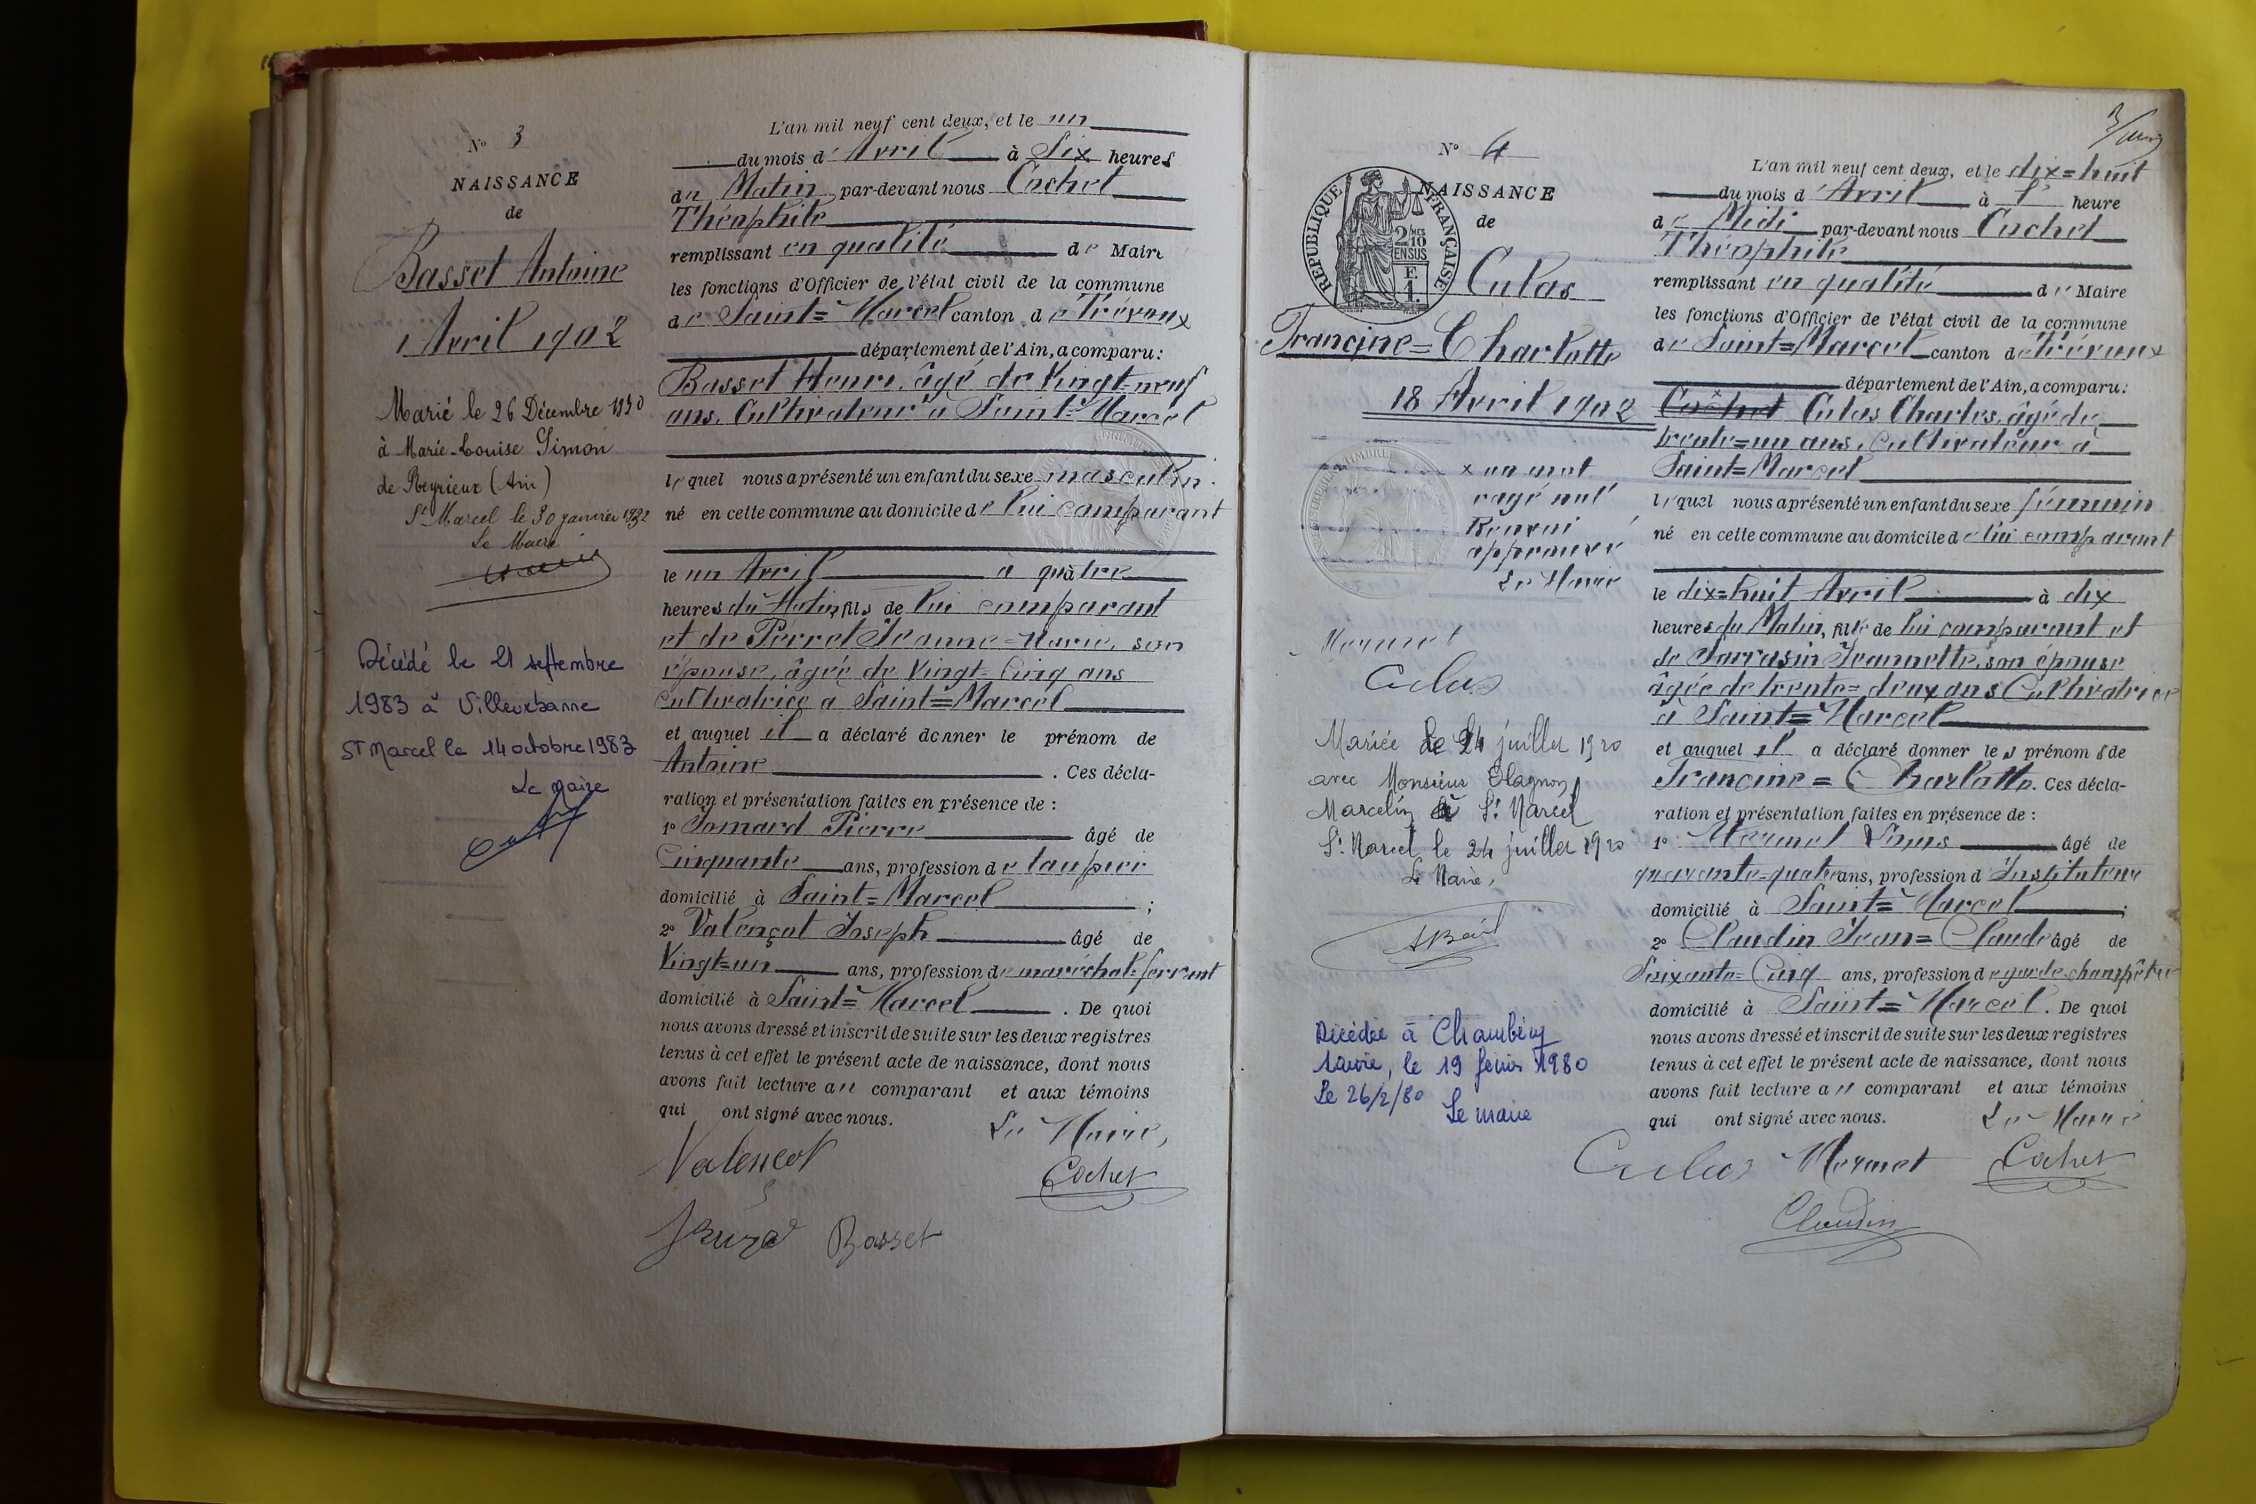 N° 3
NAISSANCE
de
Basset Antoine
1 Avril 1902
Marié le 26 Décembre 1930
à Marie-Louise Simon
de Reyrieux (Ain)
St Marcel le 30 janvier 1932
Le Maire
Décédé le 21 septembre
1983 à Villeurbanne
ST Marcel le 14 octobre 1983
Le Maire
L'an mil neuf cent deux, et le un
du mois d'Avril à Six heures
du Matin par-devant nous Cochet
Théophile
remplissant en qualité de Maire
les fonctions d'Officier de l'état civil de la commune
de Saint=Marcel canton de Trévoux
département de l'Ain, a comparu:
Basset Henri, âgé de Vingt=neuf
ans, Cultivateur à Saint=Marcel
lequel nous a présenté un enfant du sexe masculin.
né en cette commune au domicile de lui comparant
le un Avril à quatre
heures du Matin, fils de lui comparant
et de Perret Jeanne=Marie, son
épouse, âgée de Vingt=Cinq ans
Cultivatrice à Saint=Marcel
et auquel il a déclaré donner le prénom de
Antoine . Ces décla-
ration et présentation faites en présence de :
1° Jomard Pierre âgé de
Cinquante ans, profession de taupier
domicilié à Saint=Marcel ;
2° Valençot Joseph âgé de
Vingt=un ans, profession de maréchal=ferrant
domicilié à Saint=Marcel . De quoi
nous avons dressé et inscrit de suite sur les deux registres
tenus à cet effet le présent acte de naissance, dont nous
avons fait lecture au comparant et aux témoins
qui ont signé avec nous.
Le Maire,
Valençot
Cochet
Basset
N° 4
NAISSANCE
de
REPUBLIQUE FRANÇAISE
2/10
EN SUS
Culas
Francine=Charlotte
18 Avril 1902
x un mot
rayé nul
Renvoi
approuvé
Le Maire
Mermet
Culas
Mariée le 24 juillet 1920
avec Monsieur Olagnon
Marcelin à St Marcel
St Marcel le 24 juillet 1920
Le Maire,
Décédée à Chambéry
Savoie, le 19 février 1980
Le 26/2/80
Le maire
L'an mil neuf cent deux, et le dix=huit
du mois d'Avril à 1 heure
de Midi par-devant nous Cochet
Théophile
remplissant en qualité de Maire
les fonctions d'Officier de l'état civil de la commune
de Saint=Marcel canton de Trévoux
département de l'Ain, a comparu:
Cochet Culas Charles, âgé de
trente=un ans, Cultivateur à
Saint=Marcel
lequel nous a présenté un enfant du sexe féminin
né en cette commune au domicile de lui comparant
le dix=huit Avril à dix
heures du Matin, fille de lui comparant et
de Sarrasin Jeannette, son épouse
âgée de trente=deux ans Cultivatrice
à Saint=Marcel
et auquel il a déclaré donner les prénoms de
Francine=Charlotte. Ces décla-
ration et présentation faites en présence de :
1° Mermet Louis âgé de
quarante=quatre ans, profession d'Instituteur
domicilié à Saint=Marcel ;
2° Claudin Jean=Claude âgé de
Soixante=Cinq ans, profession de garde-champêtre
domicilié à Saint=Marcel. De quoi
nous avons dressé et inscrit de suite sur les deux registres
tenus à cet effet le présent acte de naissance, dont nous
avons fait lecture au comparant et aux témoins
qui ont signé avec nous.
Le Maire
Culas Mermet Cochet
Claudin